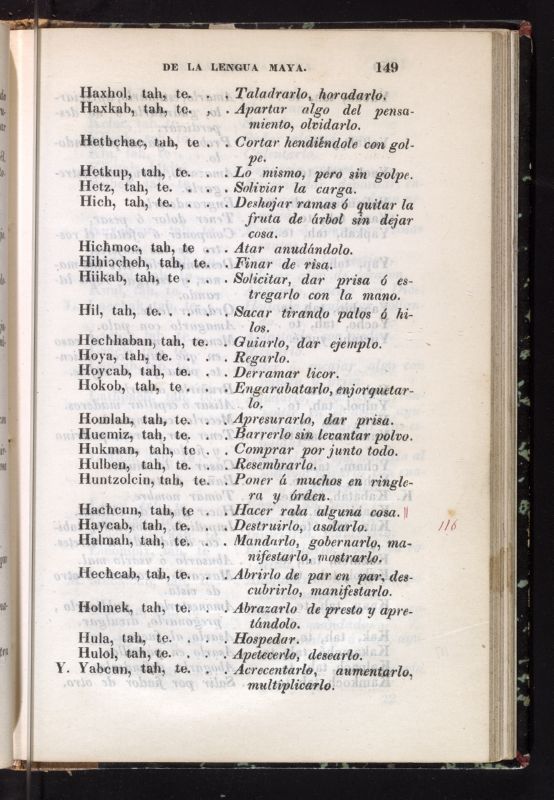 DE LA LENGUA MAYA. 149
Haxhol, tah, te. . . Taladrarlo, horadarlo.
Haxkab, tah, te. . . Apartar algo del pensa-
miento, olvidarlo.
Hethchac, tah, te . . Cortar hendiéndole con gol-
pe.
Hetkup, tah, te. . . Lo mismo, pero sin golpe.
Hetz, tah, te. . . . Soliviar la carga.
Hich, tah, te. . . . Deshojar ramas ó quitar la
fruta de árbol sin dejar
cosa.
Hichmoc, tah, te . . Atar anudándolo.
Hihiɔcheh, tah, te. . Finar de risa.
Hiikab, tah, te . . . Solicitar, dar prisa ó es-
tregarlo con la mano.
Hil, tah, te. . . . . Sacar tirando palos ó hi-
los.
Hechhaban, tah, te. . Guiarlo, dar ejemplo.
Hoya, tah, te. . . . Regarlo.
Hoycab, tah, te . . . Derramar licor.
Hokob, tah, te . . . Engarabatarlo, enjorquetar-
lo.
Homlah, tah, te. . . Apresurarlo, dar prisa.
Hucmiz, tah, te. . . Barrerlo sin levantar polvo.
Hukman, tah, te . . Comprar por junto todo.
Hulben, tah, te. . . Resembrarlo.
Huntzolcin, tah, te. . Poner á muchos en ringle-
ra y órden.
Hachcun, tah, te . . Hacer rala alguna cosa. ||
Haycab, tah, te. . . Destruirlo, asolarlo. 116
Halmah, tah, te. . . Mandarlo, gobernarlo, ma-
nifestarlo, mostrarlo.
Hechcab, tah, te. . . Abrirlo de par en par, des-
cubrirlo, manifestarlo.
Holmek, tah, te. . . Abrazarlo de presto y apre-
tándolo.
Hula, tah, te. . . . Hospedar.
Hulol, tah, te. . . . Apetecerlo, desearlo.
Y. Yabcun, tah, te. . . Acrecentarlo, aumentarlo,
multiplicarlo.